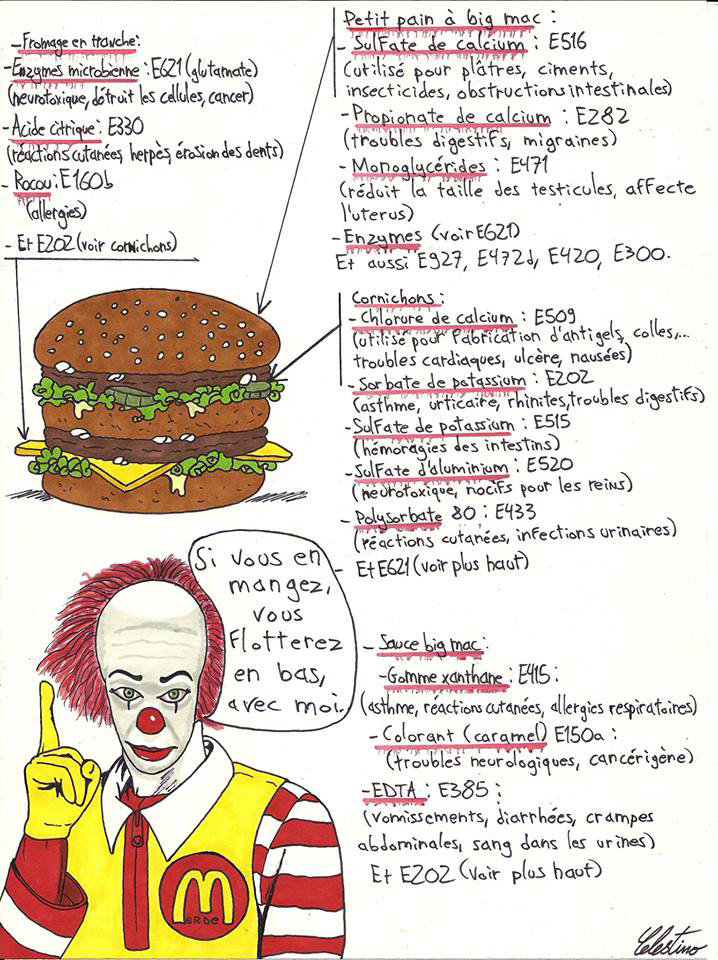 - Fromage en tranche:
- Enzymes microbienne : E621 (glutamate)
(neurotoxique, détruit les cellules, cancer)
- Acide citrique : E330
(réactions cutanées, herpès, érosion des dents)
- Rocou : E160b
(allergies)
- Et E202 (voir cornichons)
Petit pain à big mac :
- Sulfate de calcium : E516
(utilisé pour plâtres, ciments,
insecticides, obstructions intestinales)
- Propionate de calcium : E282
(troubles digestifs, migraines)
- Monoglycérides : E471
(réduit la taille des testicules, affecte
l'uterus)
- Enzymes (voir E621)
Et aussi E927, E472d, E420, E300.
Cornichons :
- Chlorure de calcium : E509
(utilisé pour fabrication d'antigels, colles,...
troubles cardiaques, ulcère, nausées)
- Sorbate de potassium : E202
(asthme, urticaire, rhinites, troubles digestifs)
- Sulfate de potassium : E515
(hémoragies des intestins)
- Sulfate d'aluminium : E520
(neurotoxique, nocifs pour les reins)
- Polysorbate 80 : E433
(réactions cutanées, infections urinaires)
- Et E621 (voir plus haut)
Si vous en
mangez,
vous
flotterez
en bas,
avec moi.
- Sauce big mac :
- Gomme xanthane : E415 :
(asthme, réactions cutanées, allergies respiratoires)
- Colorant (caramel) E150a :
(troubles neurologiques, cancérigène)
- EDTA : E385 :
(vomissements, diarrhées, crampes
abdominales, sang dans les urines)
Et E202 (voir plus haut)
M
ERDE
Celestino